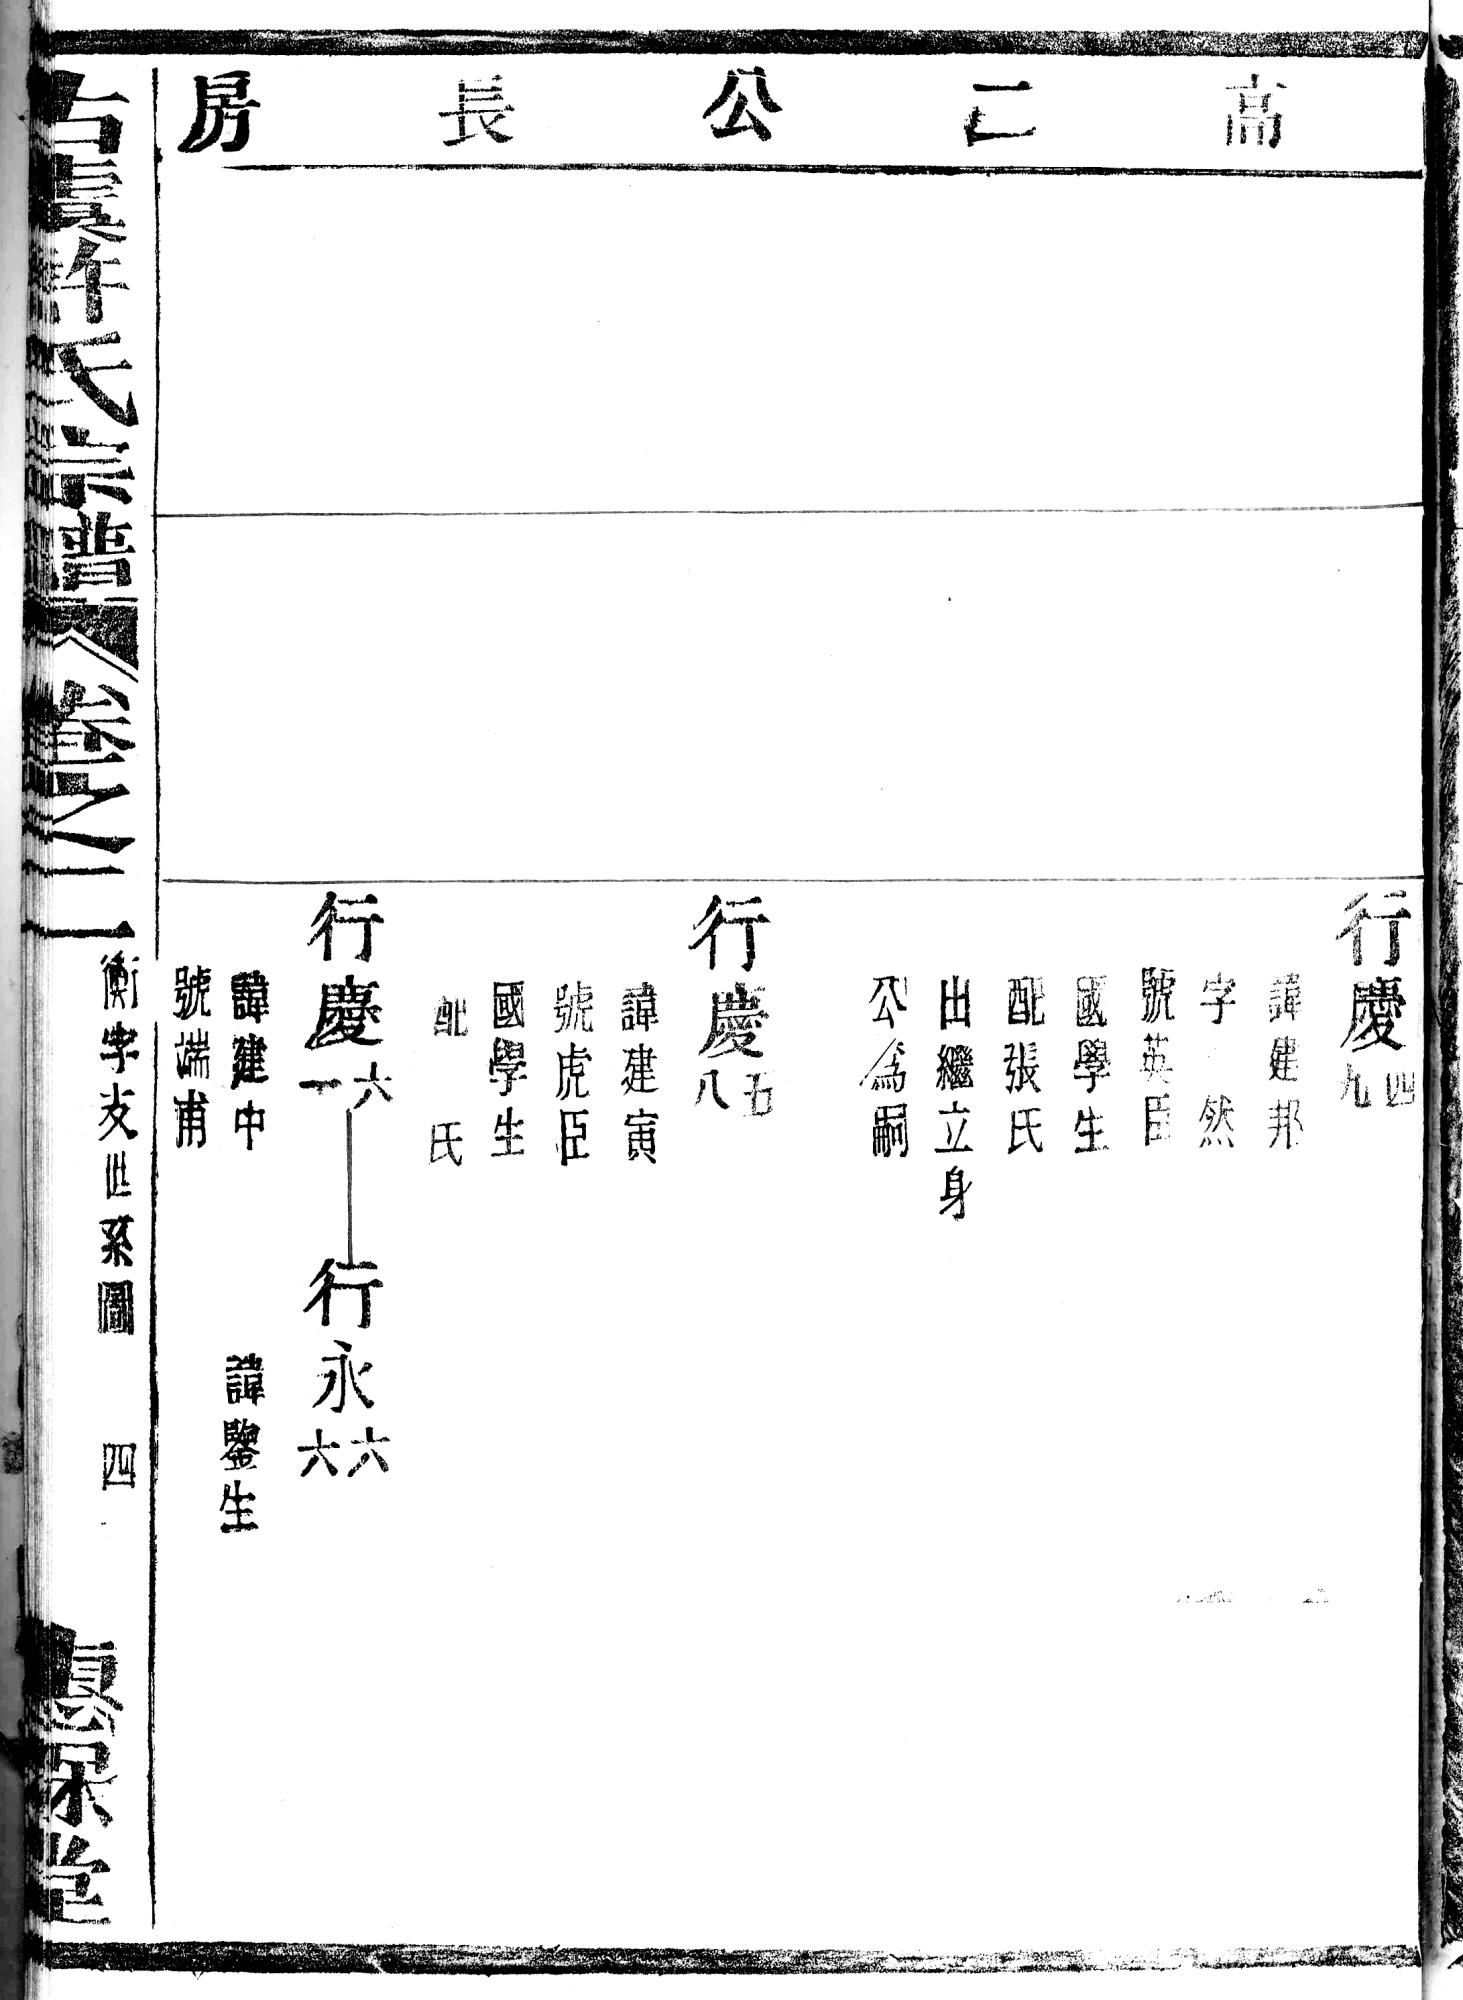 高二公長房
行慶四九
諱建邦
字　然
號英臣
國學生
配張氏
出繼立身
公為嗣
行慶五八
諱建寅
號虎臣
國學生
配　氏
行慶六一
諱建中
號端甫
行永六六
諱鑒生
古虞許氏宗譜
卷之二
衡字支世系圖
四
堂